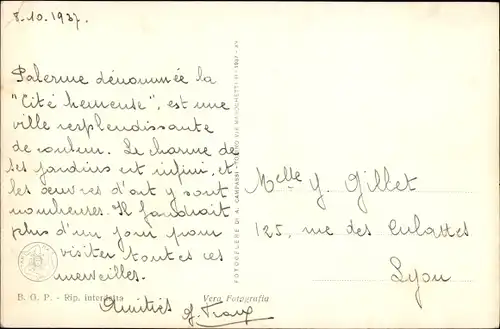 8.10.1937.
Palerme dénommée la
"Cité heureuse", est une
ville resplendissante
de couleur. Le charme de
ses jardins est infini, et
les œuvres d'art y sont
nombreuses. Il faudrait
plus d'un jour pour
visiter toutes ces
merveilles.
Amitiés
B. O. P. - Rip. interdetta
Vera Fotografia
FOTOCELERE DI A. CAMPASSI
Melle Y. Gillet
125, rue des Culattes
Lyon